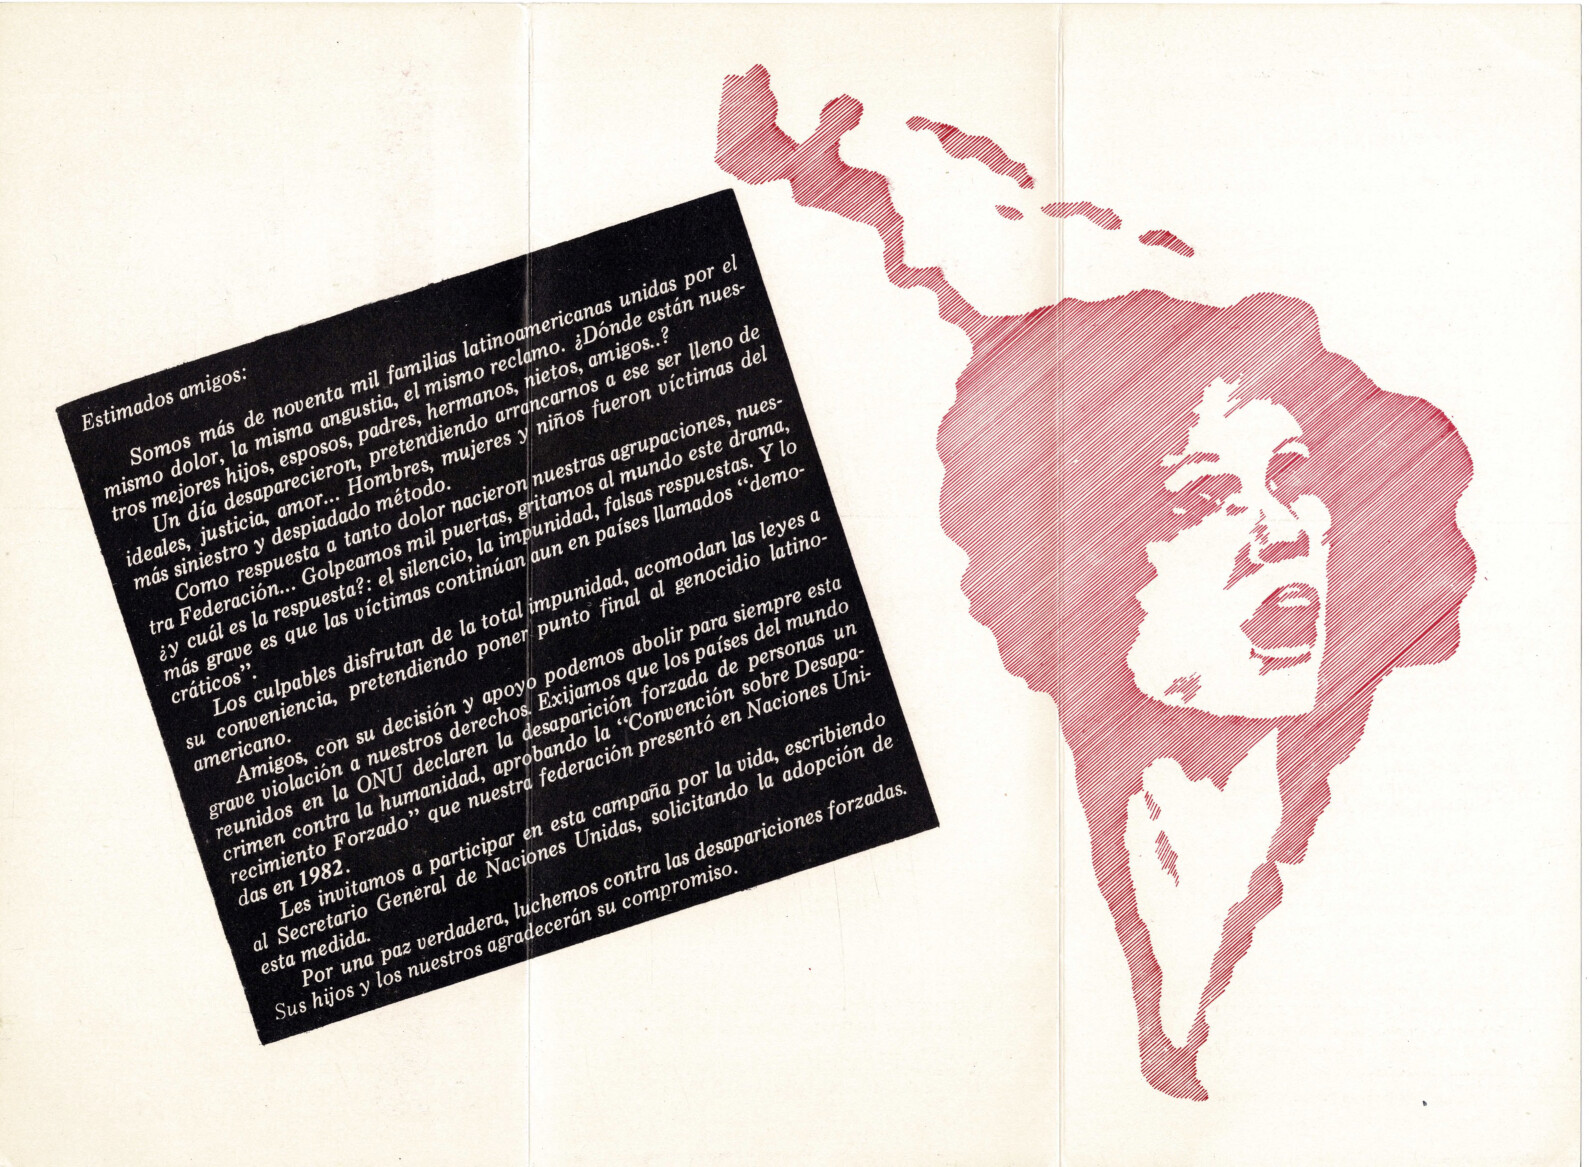 Estimados amigos:
Somos más de noventa mil familias latinoamericanas unidas por el
mismo dolor, la misma angustia, el mismo reclamo. ¿Dónde están nues-
tros mejores hijos, esposos, padres, hermanos, nietos, amigos..?
Un día desaparecieron, pretendiendo arrancarnos a ese ser lleno de
ideales, justicia, amor... Hombres, mujeres y niños fueron víctimas del
más siniestro y despiadado método.
Como respuesta a tanto dolor nacieron nuestras agrupaciones, nues-
tra Federación... Golpeamos mil puertas, gritamos al mundo este drama,
¿y cuál es la respuesta?: el silencio, la impunidad, falsas respuestas. Y lo
más grave es que las víctimas continúan aun en países llamados “demo-
cráticos”.
Los culpables disfrutan de la total impunidad, acomodan las leyes a
su conveniencia, pretendiendo poner punto final al genocidio latino-
americano.
Amigos, con su decisión y apoyo podemos abolir para siempre esta
grave violación a nuestros derechos. Exijamos que los países del mundo
reunidos en la ONU declaren la desaparición forzada de personas un
crimen contra la humanidad, aprobando la “Convención sobre Desapa-
recimiento Forzado” que nuestra federación presentó en Naciones Uni-
das en 1982.
Les invitamos a participar en esta campaña por la vida, escribiendo
al Secretario General de Naciones Unidas, solicitando la adopción de
esta medida.
Por una paz verdadera, luchemos contra las desapariciones forzadas.
Sus hijos y los nuestros agradecerán su compromiso.